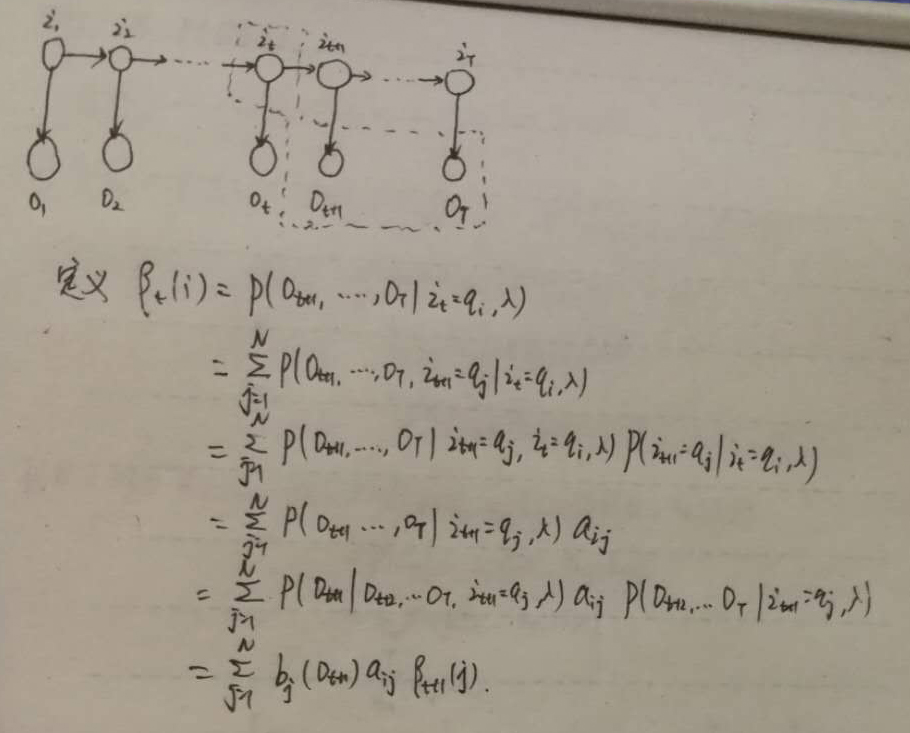 i₁ i₂ iₜ iₜ₊₁ i_T
O₁ O₂ Oₜ Oₜ₊₁ O_T
定义 βₜ(i) = P(Oₜ₊₁, ⋯, O_T | iₜ=qᵢ, λ)
= ∑_{j=1}^{N} P(Oₜ₊₁, ⋯, O_T, iₜ₊₁=qⱼ | iₜ=qᵢ, λ)
= ∑_{j=1}^{N} P(Oₜ₊₁, ..., O_T | iₜ₊₁=qⱼ, iₜ=qᵢ, λ) P(iₜ₊₁=qⱼ | iₜ=qᵢ, λ)
= ∑_{j=1}^{N} P(Oₜ₊₁ ⋯, O_T | iₜ₊₁=qⱼ, λ) aᵢⱼ
= ∑_{j=1}^{N} P(Oₜ₊₁ | Oₜ₊₂, ⋯ O_T, iₜ₊₁=qⱼ, λ) aᵢⱼ P(Oₜ₊₂, ... O_T | iₜ₊₁=qⱼ, λ)
= ∑_{j=1}^{N} bⱼ(Oₜ₊₁) aᵢⱼ βₜ₊₁(j).